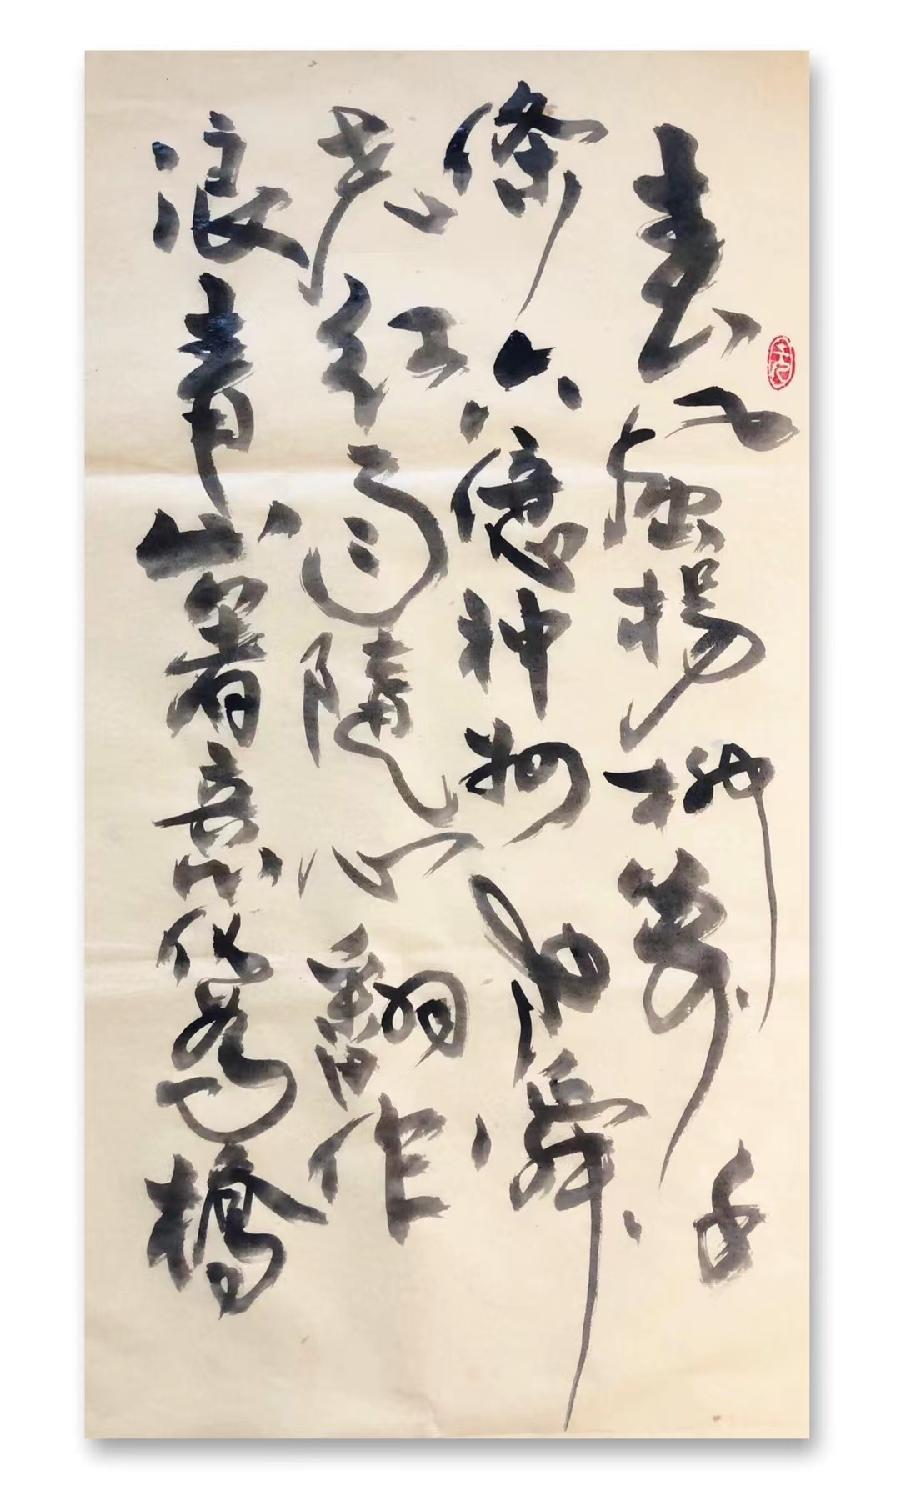 春風楊柳萬千
條六億神州尽舜
尧紅雨隨心翻作
浪青山著意化為橋